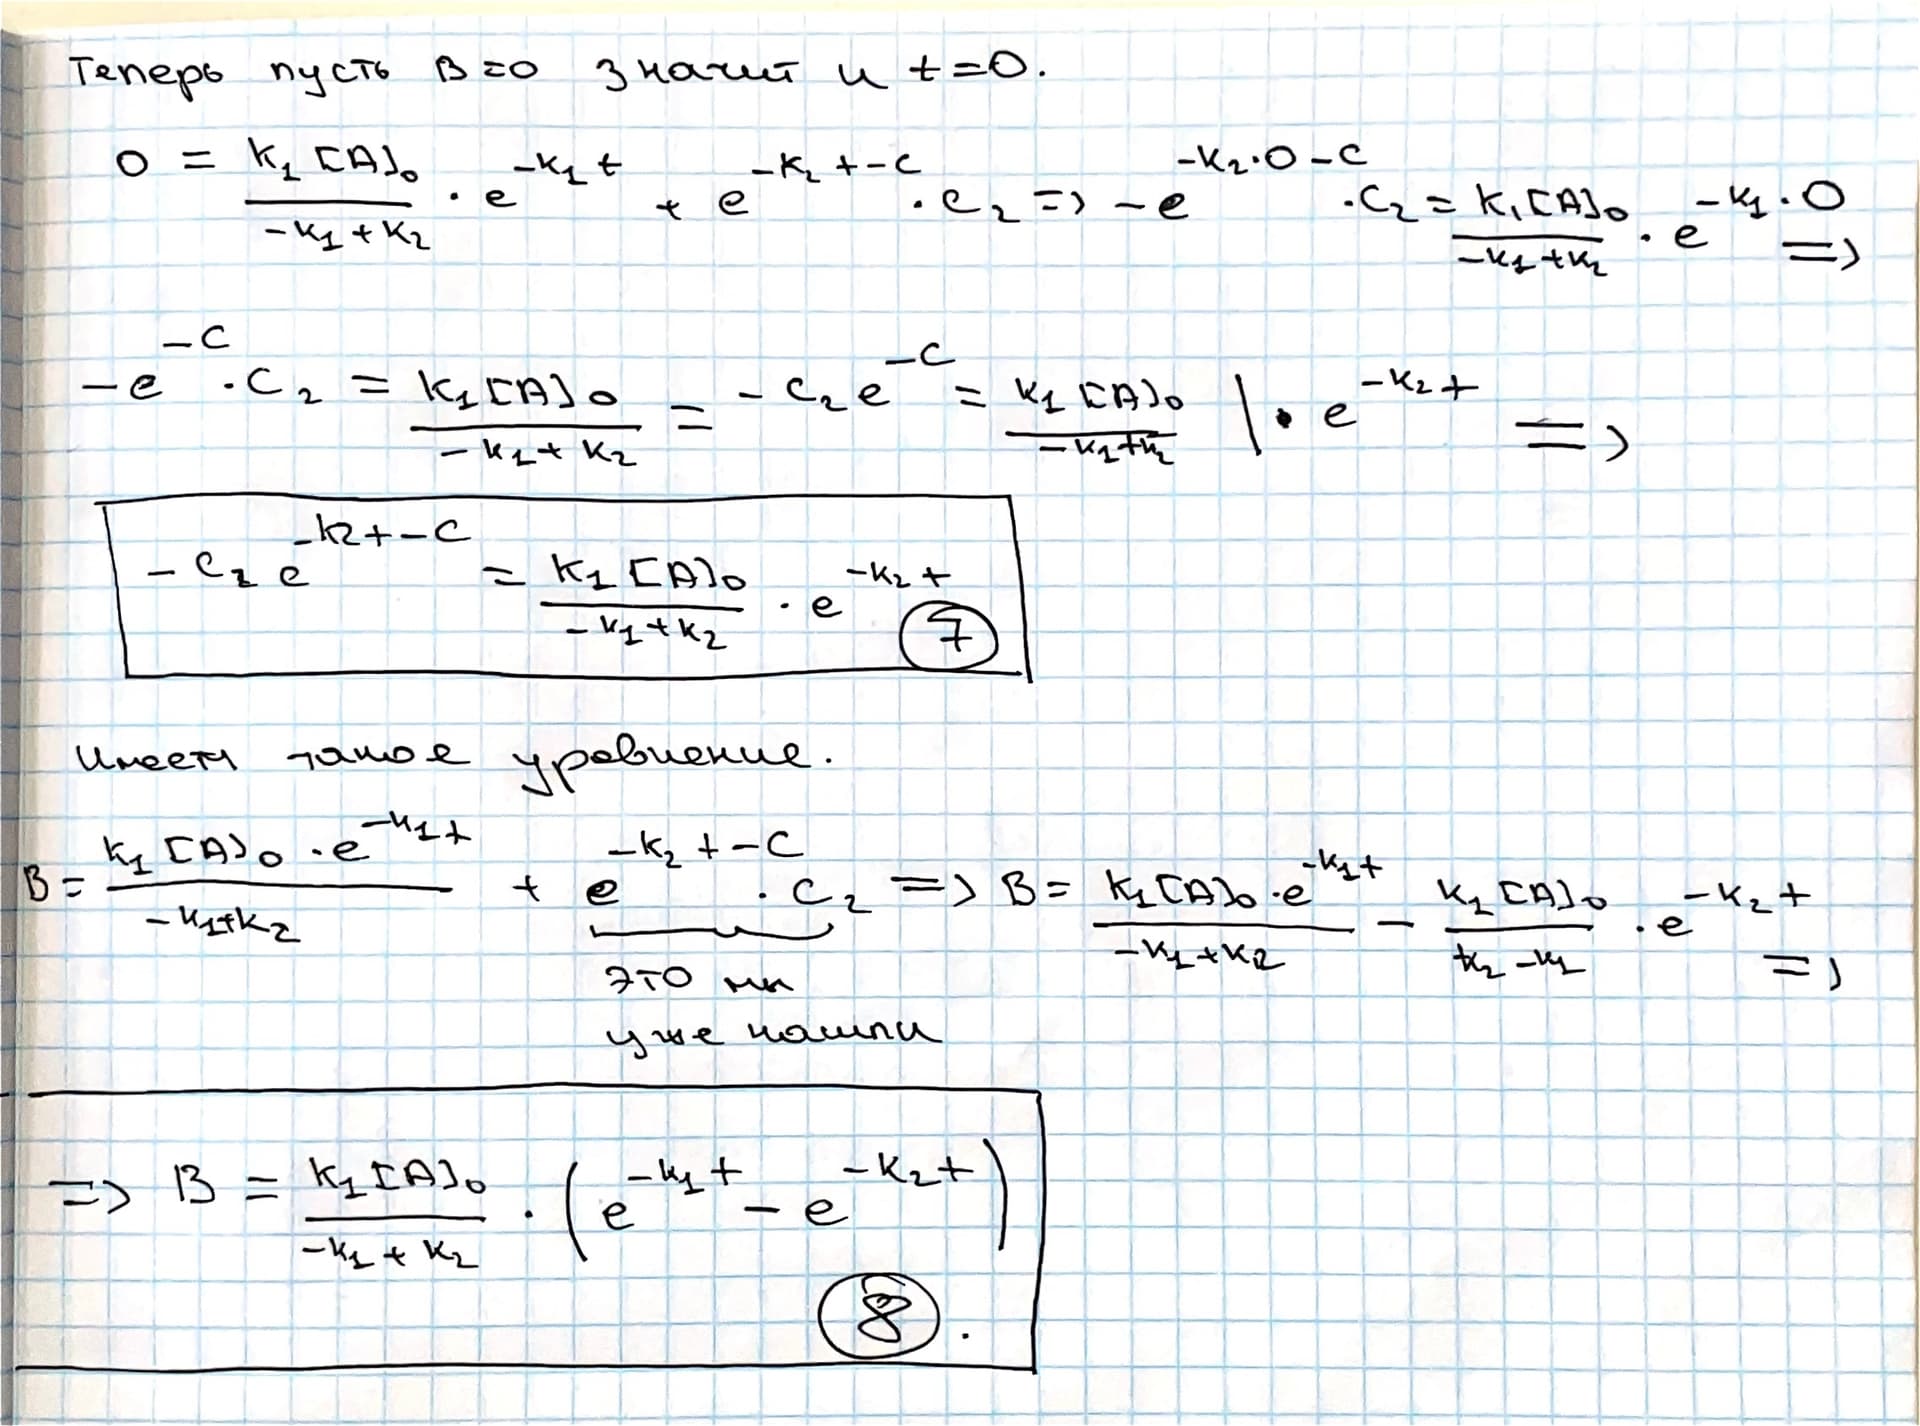 Теперь пусть B=0 значит и t=0.
0 = \frac{k_1[A]_0}{-k_1+k_2} · e^{-k_1t} + e^{-k_2t-C} · C_2 => -e^{-k_2·0-C} · C_2 = \frac{k_1[A]_0}{-k_1+k_2} · e^{-k_1·0} =>
-e^{-C} · C_2 = \frac{k_1[A]_0}{-k_1+k_2} = -C_2e^{-C} = \frac{k_1[A]_0}{-k_1+k_2} | · e^{-k_2t} =>
-C_2e^{-k_2t-C} = \frac{k_1[A]_0}{-k_1+k_2} · e^{-k_2t} (7)
Имеем такое уравнение.
B = \frac{k_1[A]_0 · e^{-k_1t}}{-k_1+k_2} + e^{-k_2t-C} · C_2 => B = \frac{k_1[A]_0 · e^{-k_1t}}{-k_1+k_2} - \frac{k_1[A]_0}{k_2-k_1} · e^{-k_2t} =>
это мы
уже нашли
=> B = \frac{k_1[A]_0}{-k_1+k_2} · (e^{-k_1t} - e^{-k_2t})
(8).